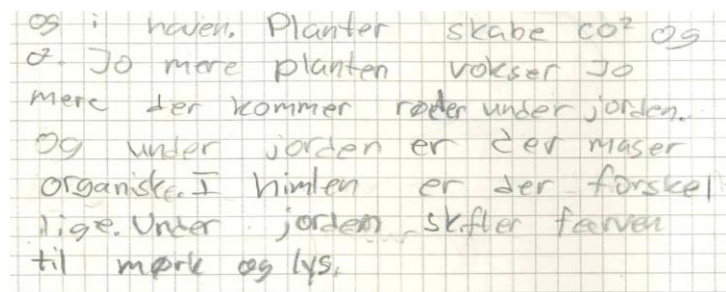 og i haven. Planter skabe co² og
o². Jo mere planten vokser Jo
mere der kommer røder under jorden.
og under jorden er der maser
organiske. I himlen er der forskel
lige. Under jorden skifter farven
til mørk og lys.